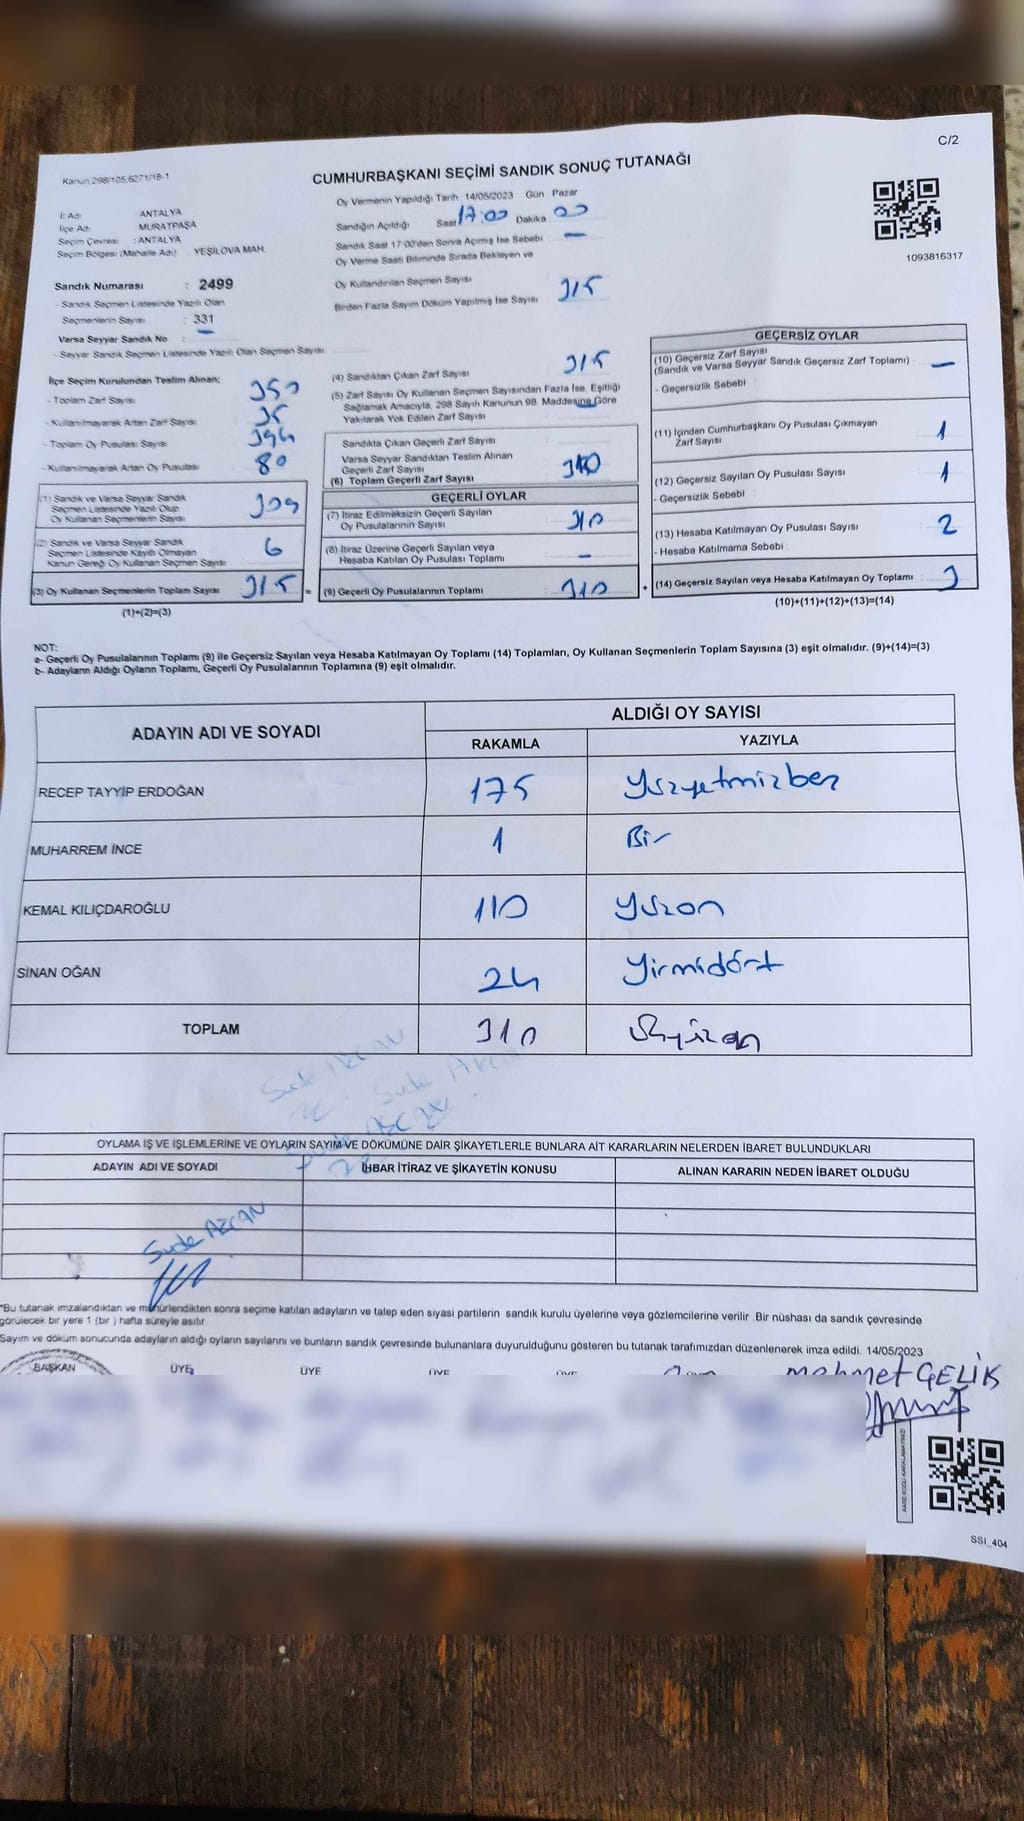 C/2
Kanun:298/105,6271/18-1
CUMHURBAŞKANI SEÇİMİ SANDIK SONUÇ TUTANAĞI
İl Adı ANTALYA
İlçe Adı MURATPAŞA
Seçim Çevresi : ANTALYA
Seçim Bölgesi (Mahalle Adı) : YEŞİLOVA MAH.
Sandık Numarası : 2499
- Sandık Seçmen Listesinde Yazılı Olan
Seçmenlerin Sayısı : 331
Varsa Seyyar Sandık No : —
- Seyyar Sandık Seçmen Listesinde Yazılı Olan Seçmen Sayısı
Oy Vermenin Yapıldığı Tarih 14/05/2023 Gün Pazar
Sandığın Açıldığı Saat 17:00 Dakika 00
Sandık Saat 17:00'den Sonra Açımış İse Sebebi —
Oy Verme Saati Bitiminde Sırada Bekleyen ve
Oy Kullandırılan Seçmen Sayısı
Birden Fazla Sayım Döküm Yapılmış İse Sayısı : 315
1093816317
İlçe Seçim Kurulundan Teslim Alınan;
- Toplam Zarf Sayısı 350
- Kullanılmayarak Artan Zarf Sayısı 35
- Toplam Oy Pusulası Sayısı 394
- Kullanılmayarak Artan Oy Pusulası 80
(1) Sandık ve Varsa Seyyar Sandık
Seçmen Listesinde Yazılı Olup
Oy Kullanan Seçmenlerin Sayısı 309
(2) Sandık ve Varsa Seyyar Sandık
Seçmen Listesinde Kayıtlı Olmayan
Kanun Gereği Oy Kullanan Seçmen Sayısı 6
(3) Oy Kullanan Seçmenlerin Toplam Sayısı 315 =
(1)+(2)=(3)
(4) Sandıktan Çıkan Zarf Sayısı 315
(5) Zarf Sayısı Oy Kullanan Seçmen Sayısından Fazla İse, Eşitliği
Sağlamak Amacıyla, 298 Sayılı Kanunun 98. Maddesine Göre
Yakılarak Yok Edilen Zarf Sayısı —
Sandıkta Çıkan Geçerli Zarf Sayısı
Varsa Seyyar Sandıktan Teslim Alınan
Geçerli Zarf Sayısı
(6) Toplam Geçerli Zarf Sayısı 310
GEÇERLİ OYLAR
(7) İtiraz Edilmeksizin Geçerli Sayılan
Oy Pusulalarının Sayısı : 310
(8) İtiraz Üzerine Geçerli Sayılan veya
Hesaba Katılan Oy Pusulası Toplamı : —
(9) Geçerli Oy Pusulalarının Toplamı : 310 +
GEÇERSİZ OYLAR
(10) Geçersiz Zarf Sayısı
(Sandık ve Varsa Seyyar Sandık Geçersiz Zarf Toplamı) : —
- Geçersizlik Sebebi :
(11) İçinden Cumhurbaşkanı Oy Pusulası Çıkmayan
Zarf Sayısı 1
(12) Geçersiz Sayılan Oy Pusulası Sayısı : 1
- Geçersizlik Sebebi :
(13) Hesaba Katılmayan Oy Pusulası Sayısı : 2
- Hesaba Katılmama Sebebi :
(14) Geçersiz Sayılan veya Hesaba Katılmayan Oy Toplamı :
(10)+(11)+(12)+(13)=(14)
NOT:
a- Geçerli Oy Pusulalarının Toplamı (9) ile Geçersiz Sayılan veya Hesaba Katılmayan Oy Toplamı (14) Toplamları, Oy Kullanan Seçmenlerin Toplam Sayısına (3) eşit olmalıdır. (9)+(14)=(3)
b- Adayların Aldığı Oyların Toplamı, Geçerli Oy Pusulalarının Toplamına (9) eşit olmalıdır.
ADAYIN ADI VE SOYADI
ALDIĞI OY SAYISI
RAKAMLA YAZIYLA
RECEP TAYYİP ERDOĞAN 175 Yüzyetmişbeş
MUHARREM İNCE 1 Bir
KEMAL KILIÇDAROĞLU 110 Yüzon
SİNAN OĞAN 24 Yirmidört
TOPLAM 310 Üçyüzon
Sude AZCAN
Sude
OYLAMA İŞ VE İŞLEMLERİNE VE OYLARIN SAYIM VE DÖKÜMÜNE DAİR ŞİKAYETLERLE BUNLARA AİT KARARLARIN NELERDEN İBARET BULUNDUKLARI
ADAYIN ADI VE SOYADI İHBAR İTİRAZ VE ŞİKAYETİN KONUSU ALINAN KARARIN NEDEN İBARET OLDUĞU
Sude AZCAN
*Bu tutanak imzalandıktan ve mühürlendikten sonra seçime katılan adayların ve talep eden siyasi partilerin sandık kurulu üyelerine veya gözlemcilerine verilir .Bir nüshası da sandık çevresinde
görülecek bir yere 1 (bir ) hafta süreyle asılır.
Sayım ve döküm sonucunda adayların aldığı oyların sayılarını ve bunların sandık çevresinde bulunanlara duyurulduğunu gösteren bu tutanak tarafımızdan düzenlenerek imza edildi. 14/05/2023
BAŞKAN ÜYE ÜYE ÜYE ÜYE
mehmet ÇELİK
SSI_404